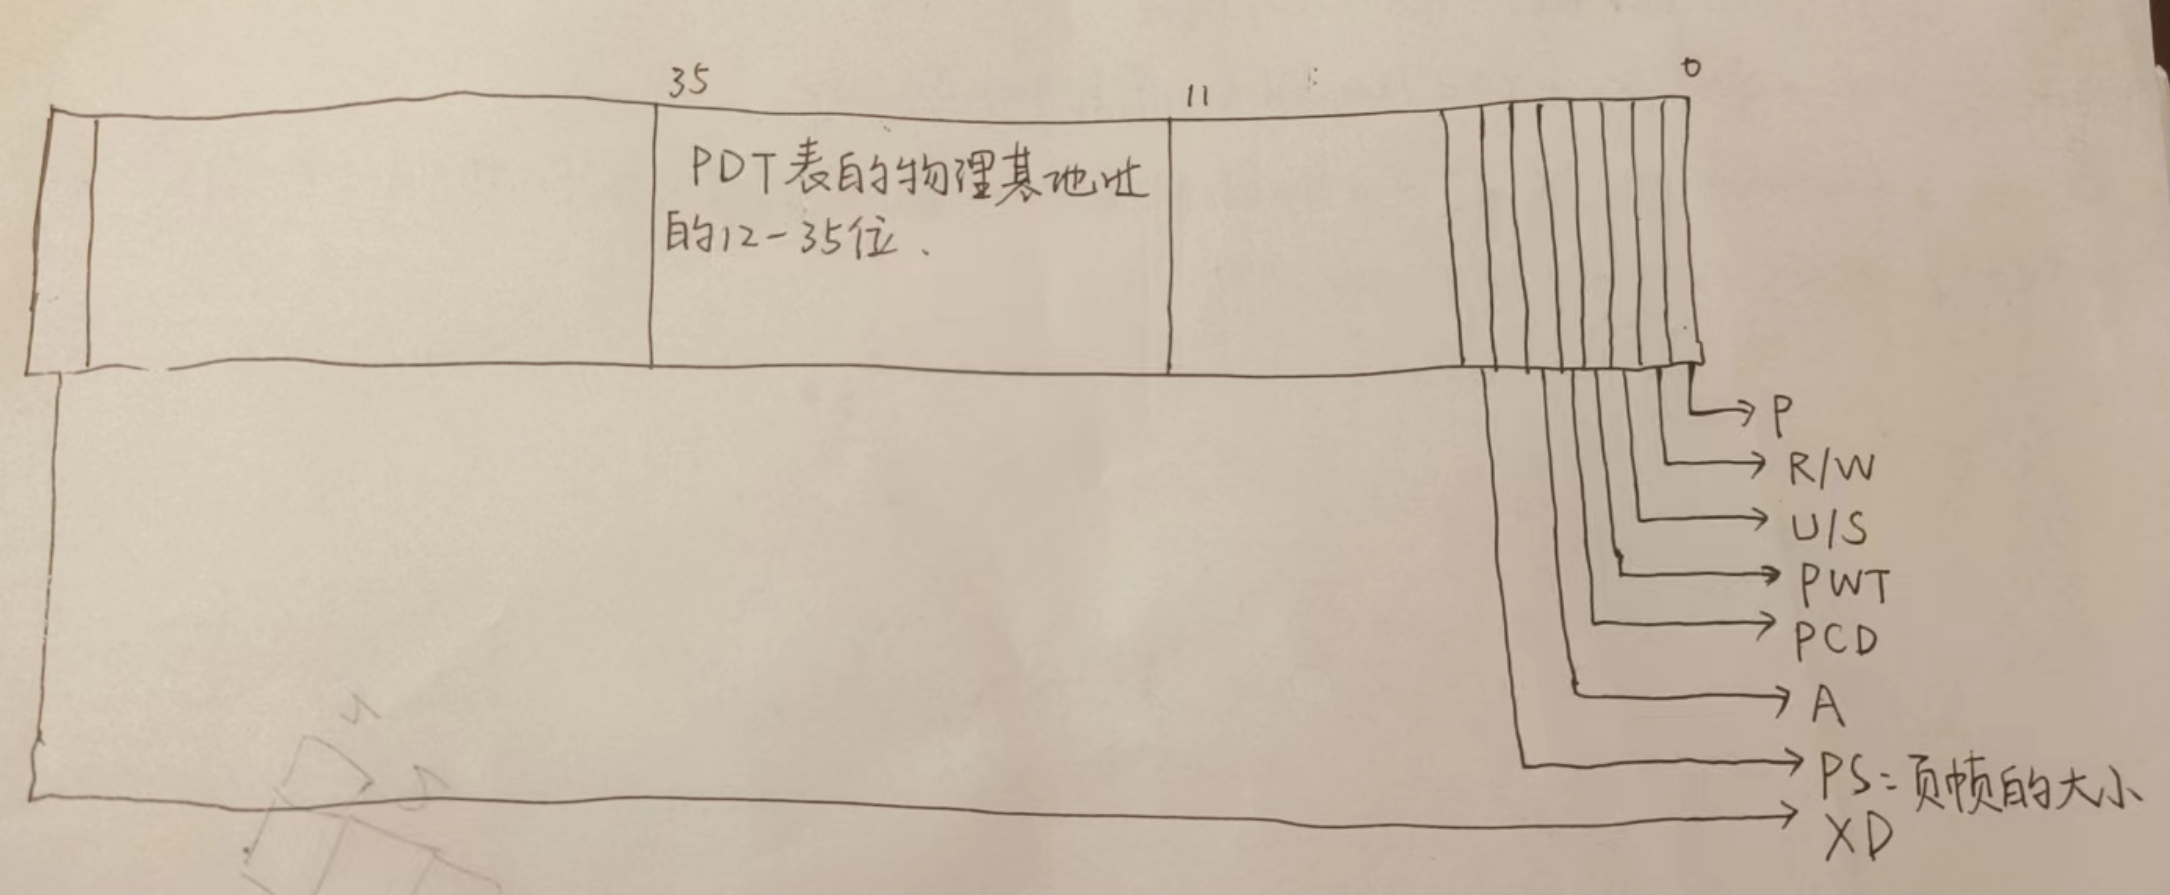 35
11
0
PDT表的物理基地址
的12-35位.
P
R/W
U/S
PWT
PCD
A
PS:页帧的大小
XD